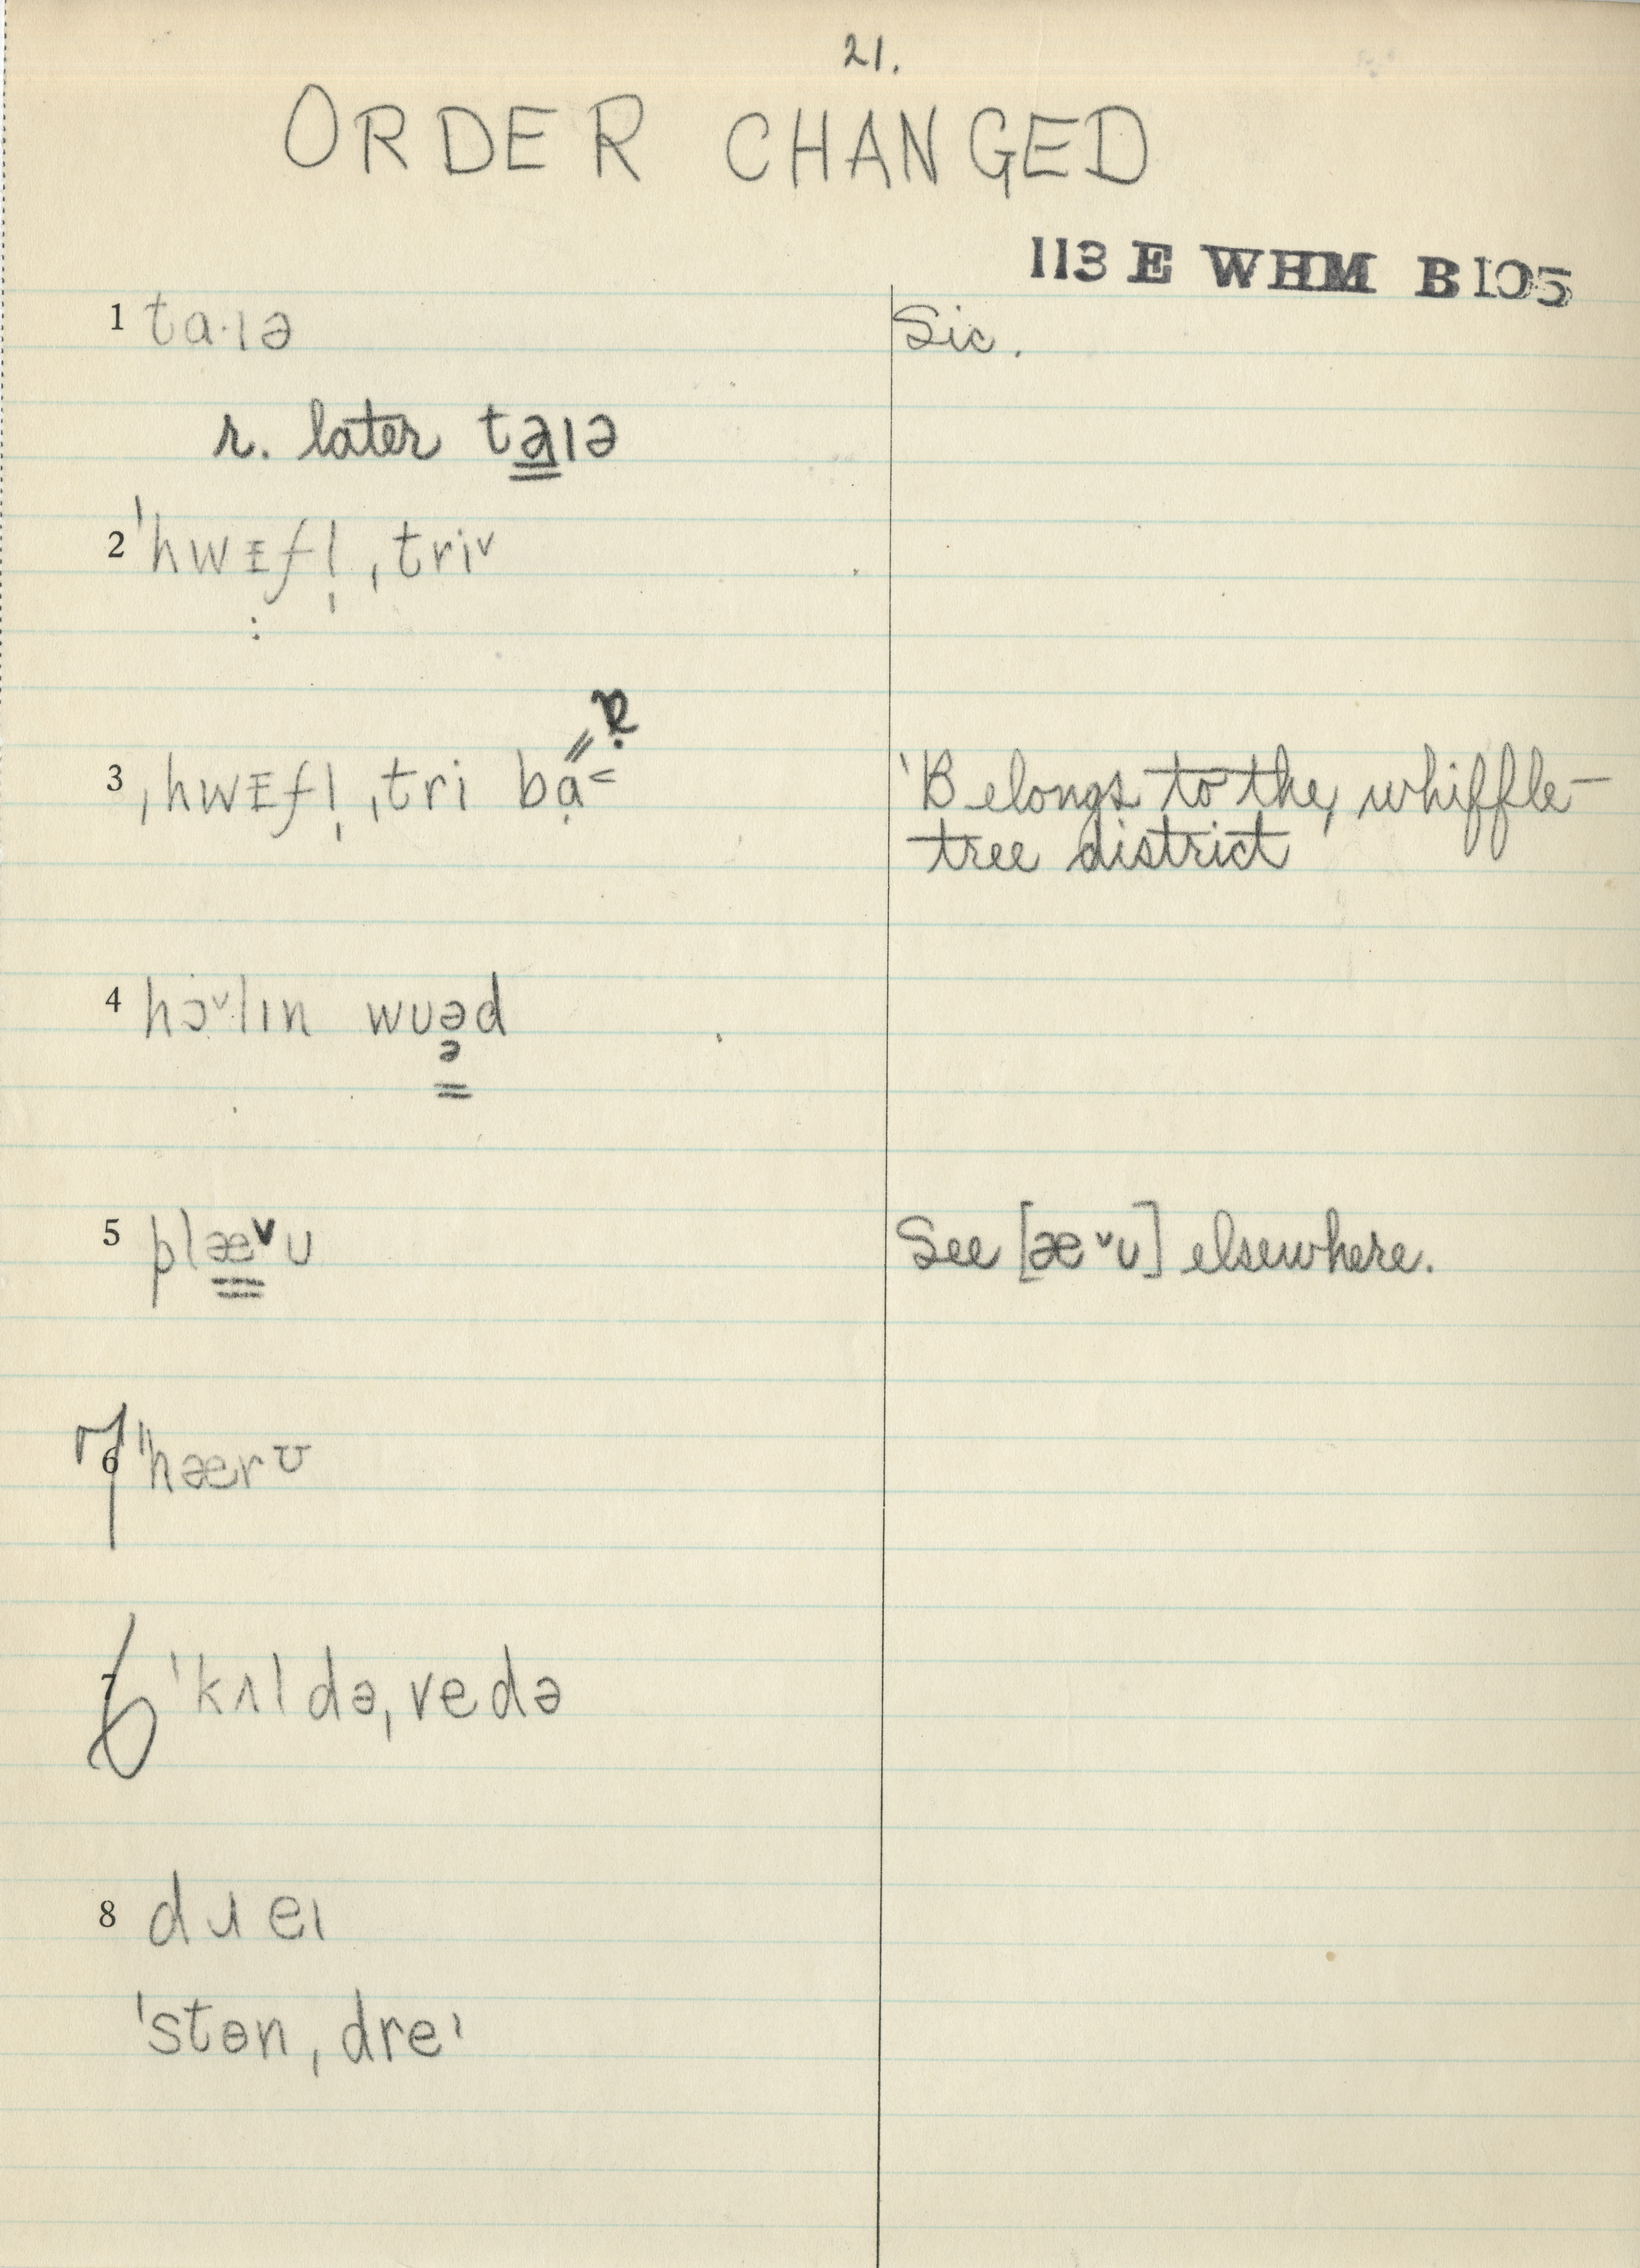 21.
ORDER CHANGED
113 E WHM B105
1 ta·ɪə Sic.
r. later ta̳ɪə
2 ˈhwɪfl̩ˌtriᵛ
3 ˌhwɪfl̩ˌtri bạ˂ 'Belongs to the whiffle-
tree district'
4 hɔ̇ᵛlɪn wuəd
ə
5 plæ̳ᵛʊ See [æᵛʊ] elsewhere.
7 ˈhærʊ
6 ˈkʌldəˌvedə
8 dɹeɪ
ˈstɵnˌdreᶦ